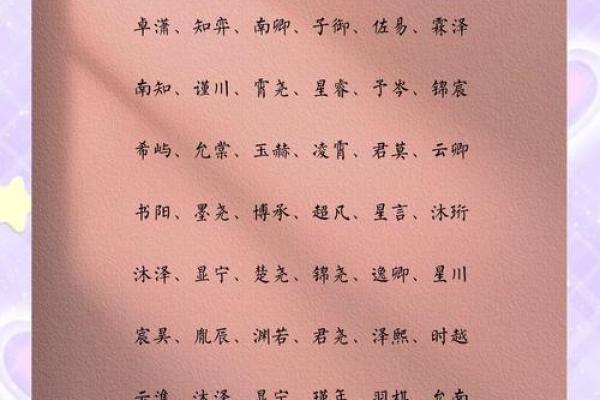 卓潇、知弈、南卿、子御、佐易、霖泽
南知、谨川、霄尧、星睿、予岑、锦宸
希屿、允棠、玉赫、凌霄、君莫、云卿
书阳、墨尧、博承、超凡、星言、沐珩
沐泽、显宁、楚尧、锦尧、逸卿、星川
宸昊、胤辰、渊若、君尧、泽熙、时越
沐泽、显宁、瑾年、羽棋、允南